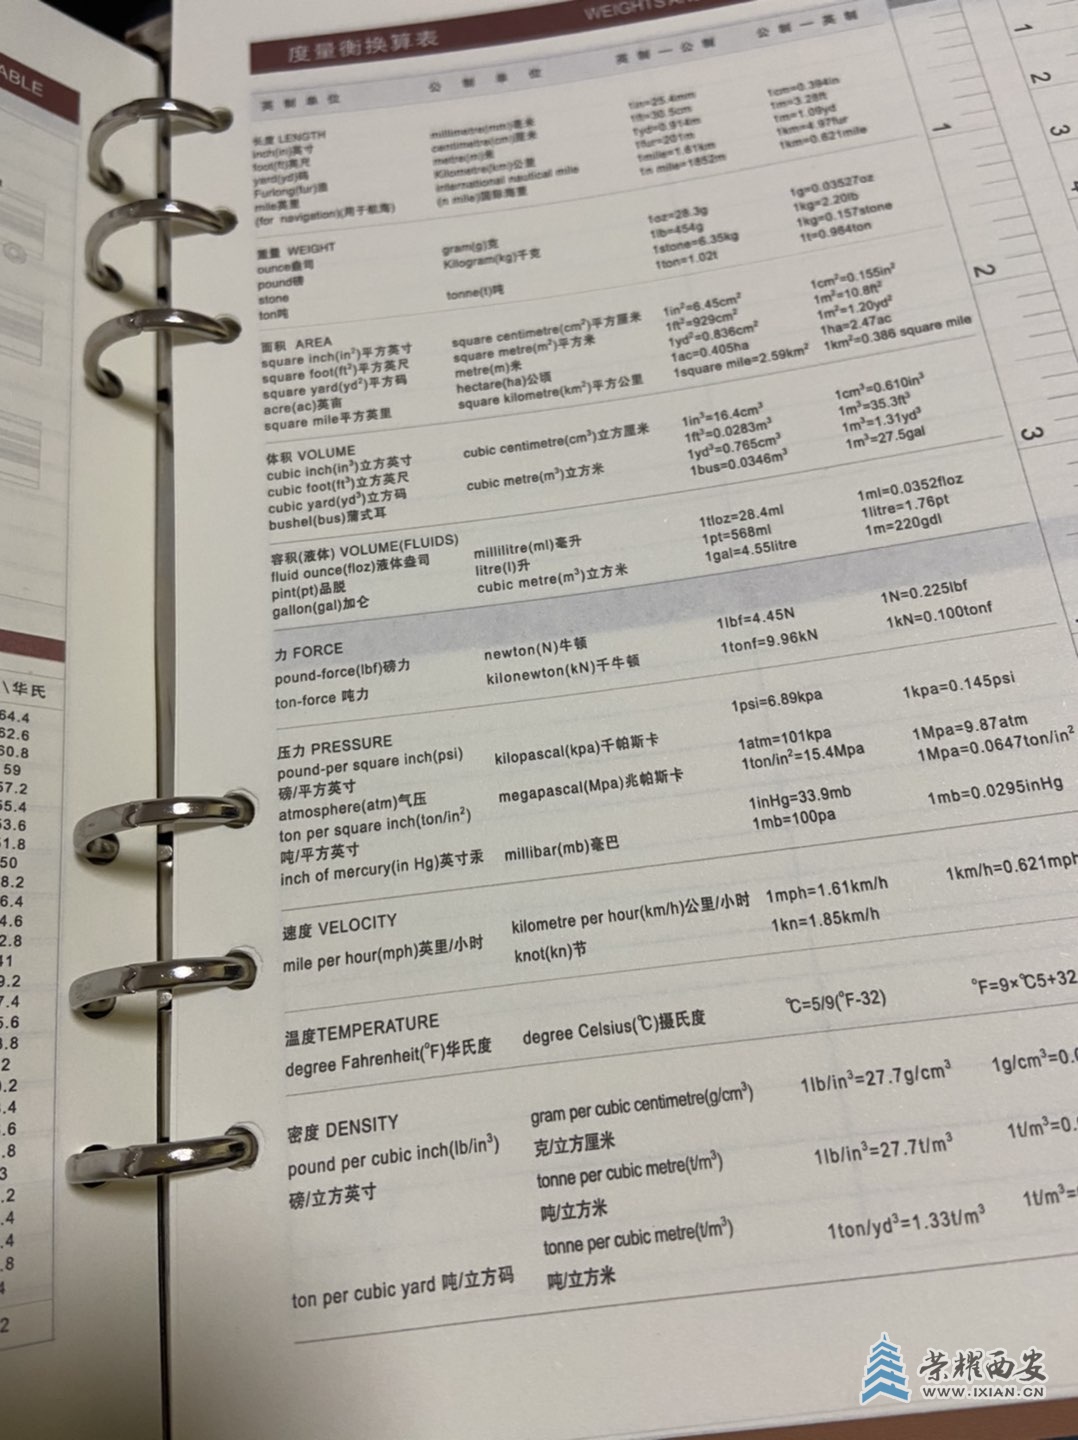 ABLE
\华氏
64.4
62.6
60.8
59
57.2
55.4
53.6
51.8
50
8.2
6.4
4.6
2.8
41
9.2
7.4
5.6
3.8
2
0.2
.4
.6
.8
3
.2
.4
.4
.8
4
2
度量衡换算表
WEIGHTS
英制单位 公制单位 英制一公制 公制一英制
长度 LENGTH millimetre(mm)毫米 1in=25.4mm 1cm=0.394in
inch(in)英寸 centimetre(cm)厘米 1ft=30.5cm 1m=3.28ft
foot(ft)英尺 metre(m)米 1yd=0.914m 1m=1.09yd
yard(yd)码 Kilometre(km)公里 1fur=201m 1km=4.97fur
Furlong(fur)浪 international nautical mile 1mile=1.61km 1km=0.621mile
mile英里 (n mile)国际海里 1n mile=1852m
(for navigation)(用于航海)
重量 WEIGHT gram(g)克 1oz=28.3g 1g=0.03527oz
ounce盎司 Kilogram(kg)千克 1lb=454g 1kg=2.20lb
pound磅 1stone=6.35kg 1kg=0.157stone
stone tonne(t)吨 1ton=1.02t 1t=0.984ton
ton吨
面积 AREA
square inch(in²)平方英寸 square centimetre(cm²)平方厘米 1in²=6.45cm² 1cm²=0.155in²
square foot(ft²)平方英尺 square metre(m²)平方米 1ft²=929cm² 1m²=10.8ft²
square yard(yd²)平方码 metre(m)米 1yd²=0.836cm² 1m²=1.20yd²
acre(ac)英亩 hectare(ha)公顷 1ac=0.405ha 1ha=2.47ac
square mile平方英里 square kilometre(km²)平方公里 1square mile=2.59km² 1km²=0.386 square mile
体积 VOLUME
cubic inch(in³)立方英寸 cubic centimetre(cm³)立方厘米 1in³=16.4cm³ 1cm³=0.610in³
cubic foot(ft³)立方英尺 1ft³=0.0283m³ 1m³=35.3ft³
cubic yard(yd³)立方码 cubic metre(m³)立方米 1yd³=0.765cm³ 1m³=1.31yd³
bushel(bus)蒲式耳 1bus=0.0346m³ 1m³=27.5gal
容积(液体) VOLUME(FLUIDS)
fluid ounce(floz)液体盎司 millilitre(ml)毫升 1tloz=28.4ml 1ml=0.0352floz
pint(pt)品脱 litre(l)升 1pt=568ml 1litre=1.76pt
gallon(gal)加仑 cubic metre(m³)立方米 1gal=4.55litre 1m=220gdl
力 FORCE
pound-force(lbf)磅力 newton(N)牛顿 1lbf=4.45N 1N=0.225lbf
ton-force 吨力 kilonewton(kN)千牛顿 1tonf=9.96kN 1kN=0.100tonf
压力 PRESSURE
pound-per square inch(psi) kilopascal(kpa)千帕斯卡 1psi=6.89kpa 1kpa=0.145psi
磅/平方英寸
atmosphere(atm)气压 megapascal(Mpa)兆帕斯卡 1atm=101kpa 1Mpa=9.87atm
ton per square inch(ton/in²) 1ton/in²=15.4Mpa 1Mpa=0.0647ton/in²
吨/平方英寸
inch of mercury(in Hg)英寸汞 millibar(mb)毫巴 1inHg=33.9mb 1mb=0.0295inHg
1mb=100pa
速度 VELOCITY
mile per hour(mph)英里/小时 kilometre per hour(km/h)公里/小时 1mph=1.61km/h 1km/h=0.621mph
knot(kn)节 1kn=1.85km/h
温度TEMPERATURE
degree Fahrenheit(°F)华氏度 degree Celsius(℃)摄氏度 ℃=5/9(°F-32) °F=9×℃5+32
密度 DENSITY
pound per cubic inch(lb/in³) gram per cubic centimetre(g/cm³) 1lb/in³=27.7g/cm³ 1g/cm³=0.0
磅/立方英寸 克/立方厘米
tonne per cubic metre(t/m³) 1lb/in³=27.7t/m³ 1t/m³=0.
吨/立方米
tonne per cubic metre(t/m³) 1ton/yd³=1.33t/m³ 1t/m³=
ton per cubic yard 吨/立方码 吨/立方米
1
2
3
1
2
3
4
荣耀西安
WWW.IXIAN.CN